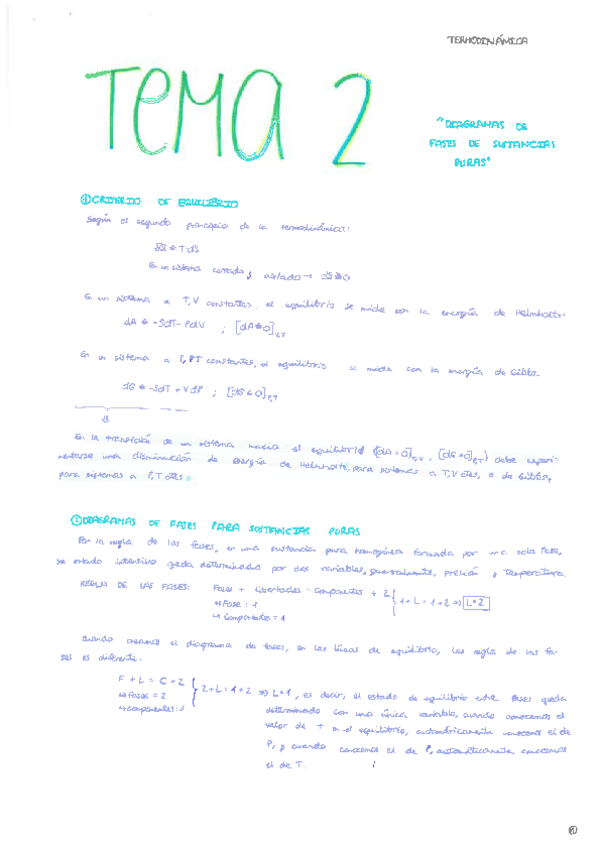 TERMODINÁMICA
TEMA 2
"DIAGRAMAS DE
FASES DE SUSTANCIAS
PURAS"
① CRITERIO DE EQUILIBRIO
Según el segundo principio de la termodinámica:
En un sistema cerrado y aislado →
En un sistema a T,V constantes, el equilibrio se mide con la energía de Helmholtz.
dA ≤ -SdT - PdV ; [dA≤0]
En un sistema a P,T constantes, el equilibrio se mide con la energía de Gibbs.
dG ≤ -SdT + VdP ; [dG ≤ 0]P,T
⇓
En la transición de un sistema hacia el equilibrio debe experi-
mentarse una disminución de energía de Helmholtz, para sistemas a T,V ctes, o de Gibbs,
para sistemas a P,T ctes.
② DIAGRAMAS DE FASES PARA SUSTANCIAS PURAS
Por la regla de las fases, en una sustancia pura homogénea formada por una sola fase,
su estado intensivo queda determinado por dos variables, generalmente, presión y temperatura.
REGLA DE LAS FASES: Fases + Libertades = Componentes + 2
↪ Fase = 1 } 1 + L = 1 + 2 ⇒ L=2
↪ Componentes = 1
Cuando creamos el diagrama de fases, en las líneas de equilibrio, las regla de las fa-
ses es diferente:
F + L = C + 2
↪ Fases = 2 } 2 + L = 1 + 2 ⇒ L=1, es decir, el estado de equilibrio entre fases queda
↪ Componentes: 1 determinado con una única variable, cuando conocemos el
valor de T en el equilibrio, automáticamente conocemos el de
P, y cuando conocemos el de P, automáticamente conocemos
el de T.
①